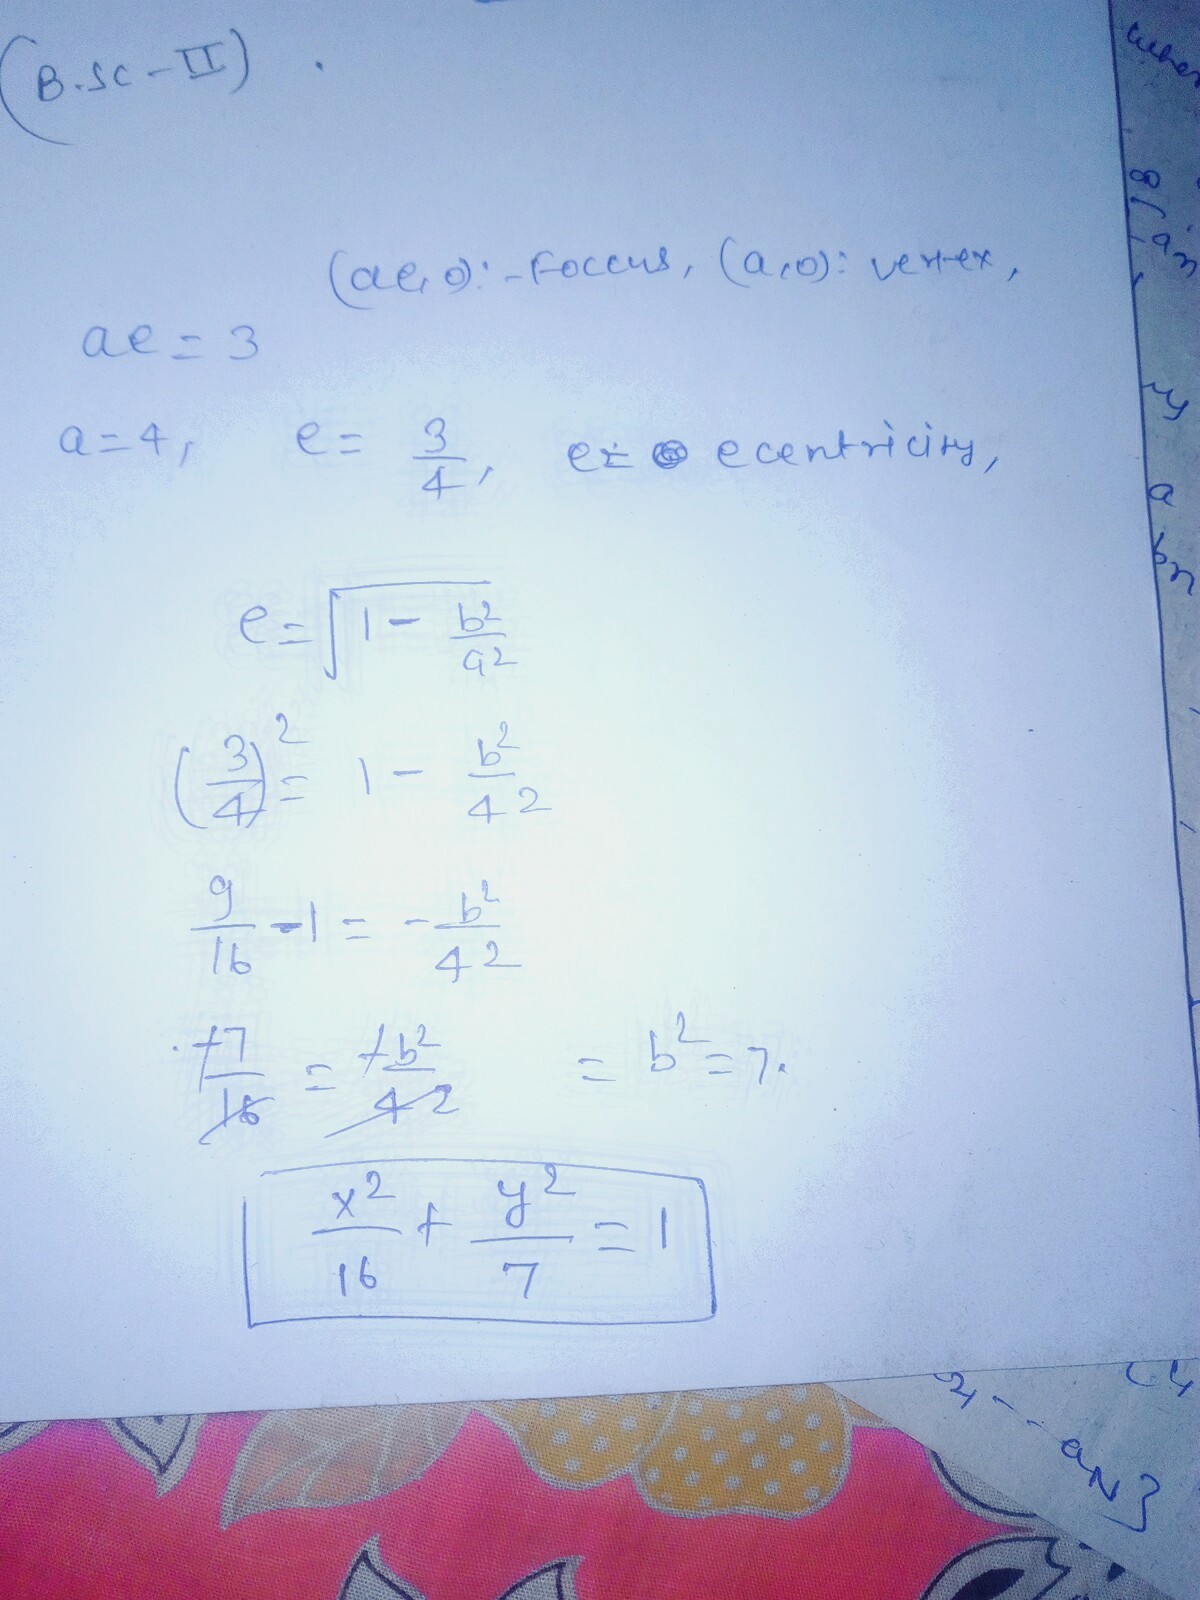 (B.SC-II) .
(ae,0):-Foccus, (a,0): vertex,
ae = 3
a=4, e= 3/4, e= ecentricity,
e=√1 - b²/a²
(3/4)² = 1 - b²/4²
9/16 -1 = - b²/4²
-7/16 = -b²/4² = b²=7.
x²/16 + y²/7 = 1